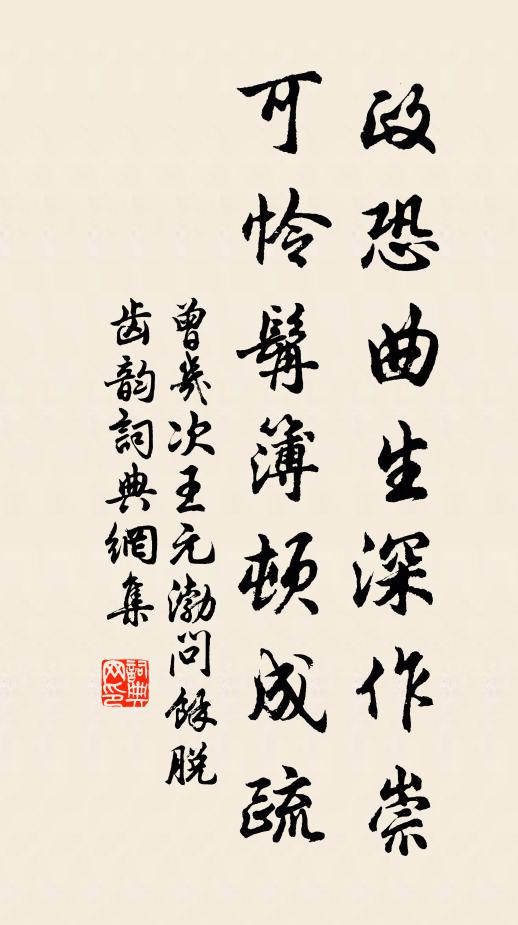 政恐曲生深作祟
可怜髯簿頓成疏
曾幾次王元渤問餘脱
齿韵詞典網集
詞典
网印